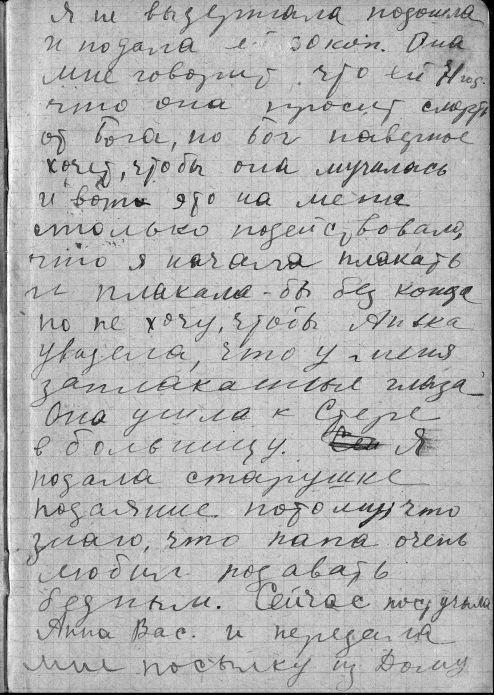 Я не выдержала подошла
и подала ей 30 коп. Она
мне говорит что ей
что она просит смерть
от Бога, но Бог наверное
хочет, чтобы она мучилась
и вот это на меня
столько подействовало,
что я начала плакать
и плакала-бы без конца
но не хочу, чтобы Анька
увидела, что у меня
заплаканные глаза
Она ушла к Стере
в больницу. Я
подала старушке
подаяние потому что
знаю, что папа очень
любил подавать
бедным. Сейчас постучала
Анна Вас. и передала
мне посылку из Дому